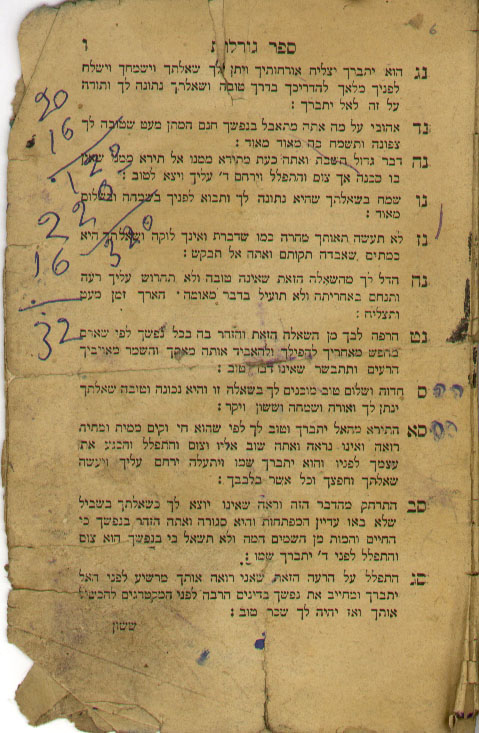 ספר גורלות ו
6
נג הוא יתברך יצליח אורחותיך ויתן לך שאלתך וישמחך וישלח
לפניך מלאך להדריכך בדרך טובה ושאלתך נתונה לך ותודה
על זה לאל יתברך :
נד אהובי על מה אתה מתאבל בנפשך חנם המתן מעט שטובה לך
צפונה ותשמח בה מאוד מאוד :
נה דבר גדול חשבת ואתה כעת מתירא ממנו אל תירא ממנו שאין
בו סכנה אך צום והתפלל וירחם ד׳ עליך ויצא לטוב :
נו שמח בשאלתך שהיא נתונה לך ותבוא לפניך בשמחה ובשלום
מאוד :
נז לא תעשה תאותך מהרה כמו שדברת ואינך לוקה ושאלתך היא
כמתים שאבדה תקותם ואתה אל תבקש :
נח הדל לך מהשאלה הזאת שאינה טובה ולא תחרוש עליך רעה
ותנחם באחריתה ולא תועיל בדבר מאומה הארך זמן מעט
ותצליח :
נט הרפה לבך מן השאלה הזאת והזהר בה בכל נפשך לפי שאדם
מחפש מאחריך להפילך ולהאביד אותה מאתך והשמר מאויביך
הרעים ותתבשר שאינו דבר טוב :
ס חדוה ושלום טוב מוכנים לך בשאלה זו והיא נכונה וטובה שאלתך
ינתן לך ואורה ושמחה וששון ויקר :
סא התירא מהאל יתברך וטוב לך לפי שהוא חי וקים ממית ומחיה
רואה ואינו נראה ואתה שוב אליו וצום והתפלל והכנע את
עצמך לפניו והוא יתברך שמו ויתעלה ירחם עליך ויעשה
שאלתך וחפצך וכל אשר בלבבך :
סב התרחק מהדבר הזה וראה שאינו יוצא לך בשאלתך בשביל
שלא באו עדיין המפתחות והיא סגורה ואתה הזהר בנפשך כי
החיים והמות מן השמים המה ולא תשאל כי בנפשך הוא צום
והתפלל לפני ד׳ יתברך שמו :
סג התפלל על הרעה הזאת שאני רואה אותך מרשיע לפני האל
יתברך ומחייב את נפשך בדינים הרבה לפני המקטרגים להכשיל
אותך ואז יהיה לך שכר טוב :
ששון
20
16
120
20
2
320
16
32